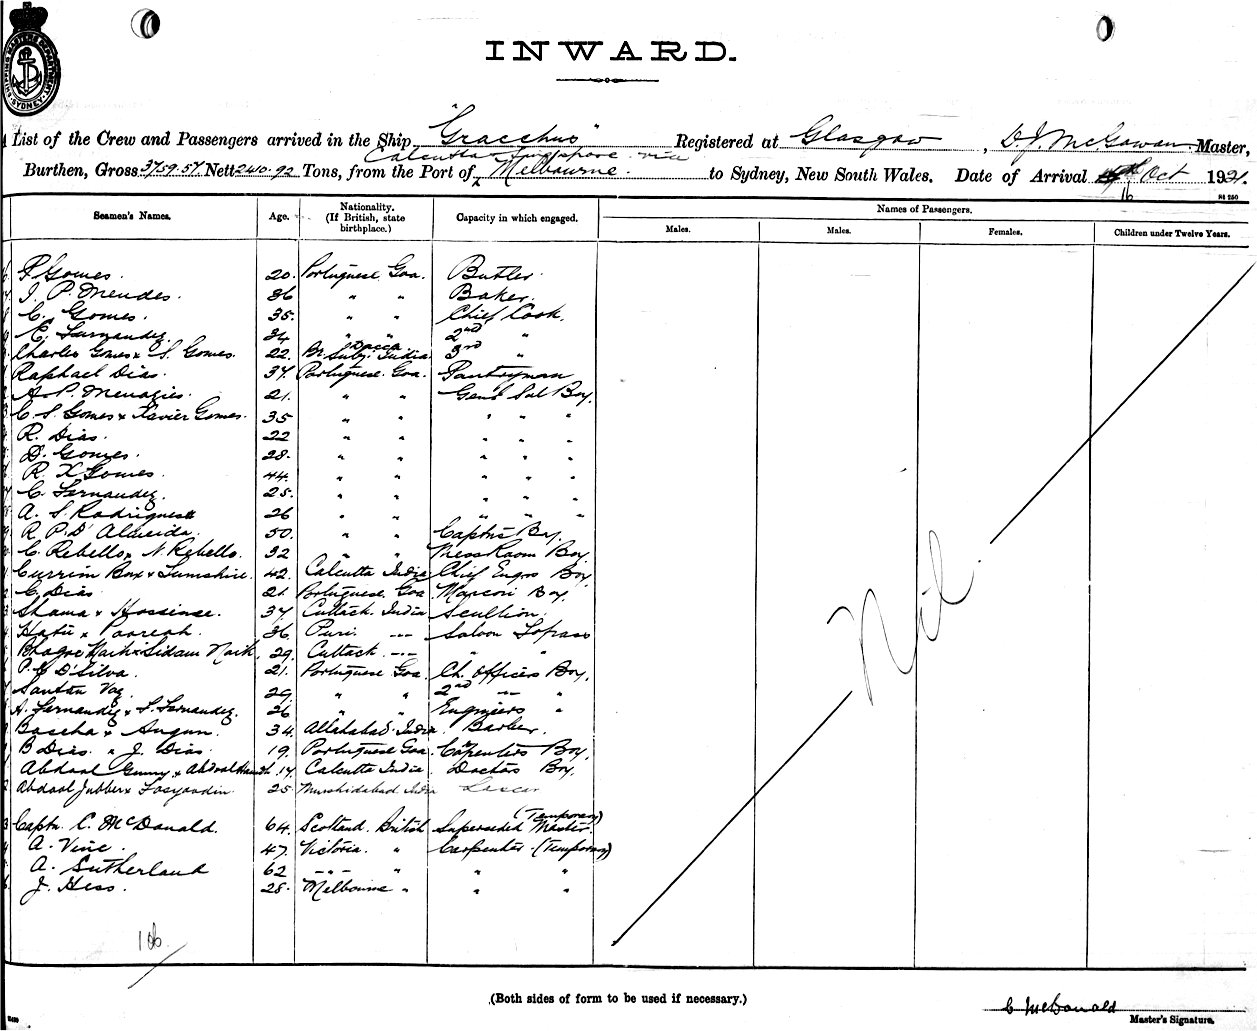 SHIPPING MASTER'S DEPARTMENT SYDNEY
INWARD.
List of the Crew and Passengers arrived in the Ship "Gracchus" Registered at Glasgow, D. J. McGowan Master,
Calcutta Singapore via
Burthen, Gross 3759.57 Nett 2410.92 Tons, from the Port of Melbourne. to Sydney, New South Wales. Date of Arrival Oct 1921.
16
St 250
Seamen's Names. Age. Nationality. (If British, state birthplace.) Capacity in which engaged. Names of Passengers.
Males. Males. Females. Children under Twelve Years.
P. Gomes. 20. Portuguese Goa. Butler.
J. P. Mendes. 36 " " Baker.
C. Gomes. 35. " " Chief Cook.
C. Fernandez 34 " " 2nd "
Charles Gomes x S. Gomes. 22. Br. Subj. Dacca India 3rd "
Raphael Dias. 37. Portuguese Goa. Pantryman
A. P. Menazies. 21. " " Genl Sal Boy.
C. S. Gomes x Xavier Gomes. 35 " " " " "
R. Dias. 22 " " " " "
D. Gomes. 28. " " " " "
R. X Gomes. 44. " " " " "
C. Fernandez. 25. " " " " "
A. S. Rodriguese 26 " " " " "
R. P. D'Almeida. 50. " " Captns Boy.
C. Rebello x N. Rebello. 32 " " Messroom Boy
Currim Bax x Sumshire. 42. Calcutta India Chief Engrs Boy
C. Dias 21 Portuguese Goa Marconi Boy.
Shama x Hossinse. 37. Cuttack. India Scullion.
Hatu x 36 Puri. -- Saloon Topass
Bhagoe Naik x Sidam Naik. 29. Cuttack. -- " "
P. C. D'Silva. 21. Portuguese Goa. Ch. Officers Boy.
Santan Vaz 29. " " 2nd -- "
A. Fernandez x S. Fernandez. 26 " " Engineers "
Boscha x Angun. 34. Allahabad. India. Barber.
B Dias. x J. Dias. 19. Portuguese Goa. Carpenters Boy.
Abdool Gunny x Abdool 17. Calcutta India. Doctors Boy.
Abdool Jubber x 25. Murshidabad India Lascar
Captn. C. McDonald. 64. Scotland. British Superseded Master. (Temporary)
A. Vine. 47. Victoria. " Carpenter (Temporary)
A. Sutherland 62 -"- " " "
J. Hess. 28. Melbourne " " "
Nil.
106
(Both sides of form to be used if necessary.)
C McDonald
Master's Signature.